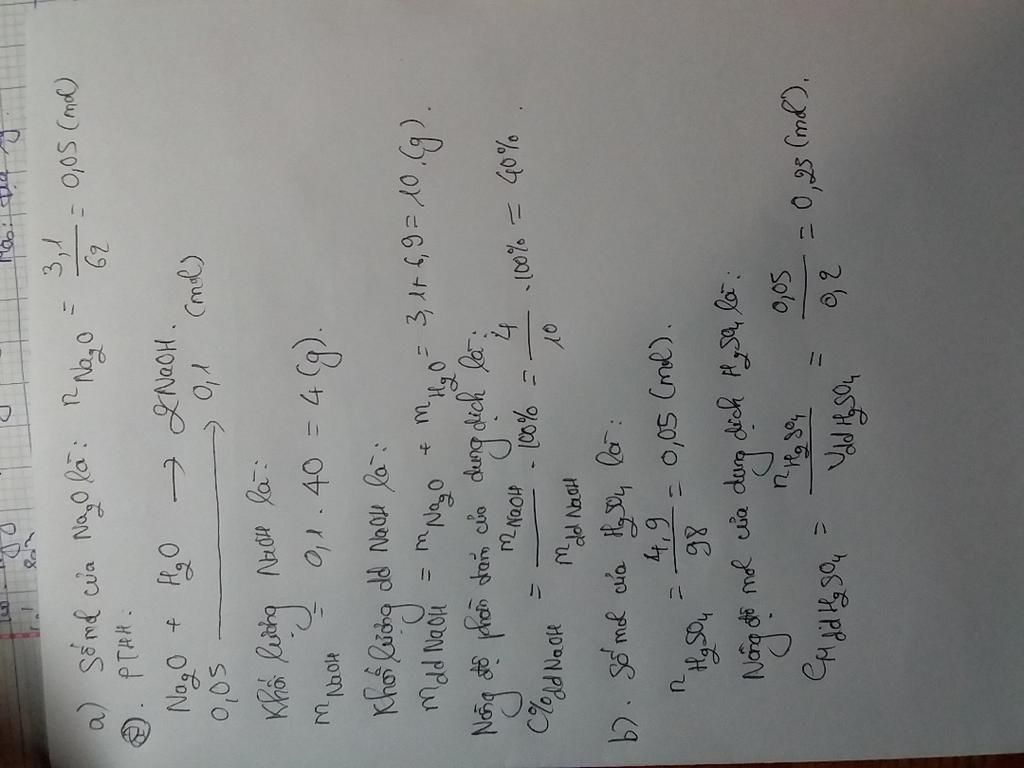 a) Số mol của Na2O là: nNa2O = 3,1/62 = 0,05 (mol)
PTHH:
Na2O + H2O → 2NaOH.
0,05 → 0,1 (mol)
Khối lượng NaOH là:
mNaOH = 0,1 . 40 = 4 (g).
Khối lượng dd NaOH là:
mddNaOH = mNa2O + mH2O = 3,1 + 6,9 = 10 (g).
Nồng độ phần trăm của dung dịch là:
C%ddNaOH = mNaOH/mddNaOH . 100% = 4/10 . 100% = 40%.
b). Số mol của H2SO4 là:
nH2SO4 = 4,9/98 = 0,05 (mol).
Nồng độ mol của dung dịch H2SO4 là:
CMddH2SO4 = nH2SO4/VddH2SO4 = 0,05/0,2 = 0,25 (mol).